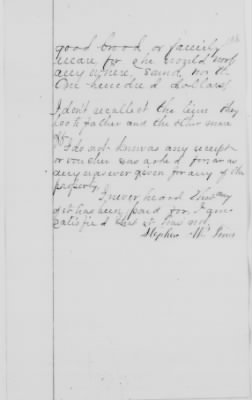 good brood or family
mare for she would work
any where, sound, worth
One hundred dollars
I don't recollect the time they
took father and the other mare
off.
I do not know as any receipt
or voucher was asked for or as
any was ever given for any of the
property.
I never heard that any
of it has been paid for. I am
satisfied that it has not.
Stephen W.